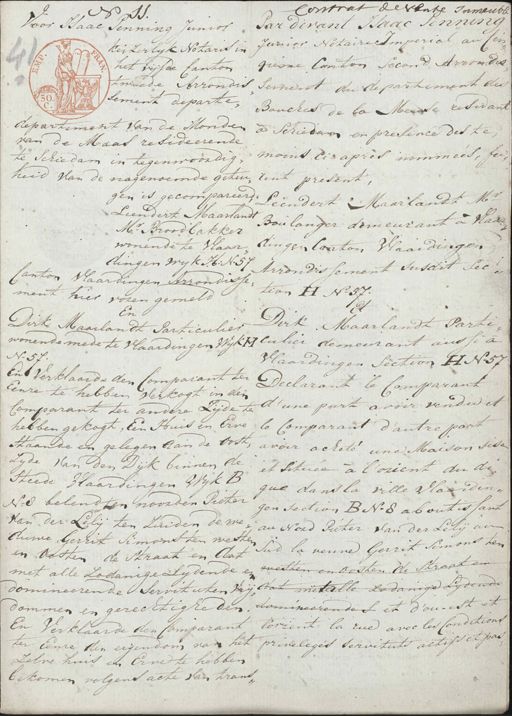 No. 11.
Voor Isaac Penning Junior
Keizerlyk Notaris in
het vyfde Canton
tweede Arrondis
sement departe,
departement van de Monden
van de Maas resideerende
te Schiedam in tegenwoordig
heid van de nagenoemde getui
gen is gecompareerd
Leendert Maarlandt
Mr. Broodbakker
wonende te Vlaar
dingen wyk H No. 57
Canton Vlaardingen Arrondisse
ment hier voren gemeld
En
Dirk Maarlandt Particulier
wonende mede te Vlaardingen Wyk H
No. 57.
En Verklaarde den Comparant ter
Eenre te hebben verkogt en den
Comparant ter andere Zyde te
hebben gekogt, Een Huis en Erve
staande en gelegen aan de Oost
zyde van den Dyk binnen de
Stede Vlaardingen Wyk B
No. 8 belendt ten noorden Pieter
van der Lelij ten Zuiden de we
duwe Gerrit Simons ten westen
en Oosten de Straat en dat
met alle Zodanige Lydende en
domineerende Servituten Vry
dommen en gerechtigheden.
En Verklaarde den Comparant
ter Eenre den eigendom van het
Zelve huis en Erve te hebben
bekomen volgens acte van trans
EMP. FRAN.
50. C.
41
Contrat de Vente Immeuble
Par devant Isaac Penning
Junior Notaire Imperial au Cin
quieme Canton Second Arrondis
sement du departement des
Bouches de la Meuse residant
a Schiedam en presence des te
moins ci après nommés, fu
rent present,
Leendert Maarlandt Mr.
Boulanger demeurant a Vlaar
dingen Canton Vlaardingen
Arrondissement susdit Sec
tion H No. 57.
et
Dirk Maarlandt Parti
culier demeurant aussi à
Vlaardingen Section H No. 57
Declarant le Comparant
d'une part avoir vendu et
le Comparant d'autre part
avoir acheté une Maison sise
et située à l'orient du di
que dans la ville Vlaardin
gen section B No. 8 aboutissant
au Nord Pieter van der Lelij au
Sud la veuve Gerrit Simons ten
westen en Oosten de Straat en
dat met alle Zodanige Lydende
domineerende et d'ouest et
lorient la rue avec les Conditions
privileges servitute actifs et pas